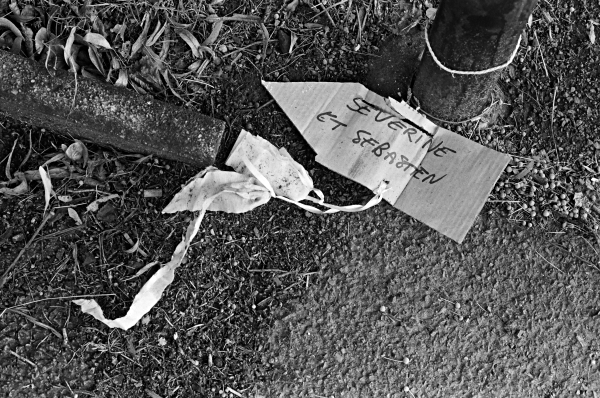 SEVERINE
ET SEBASTIEN